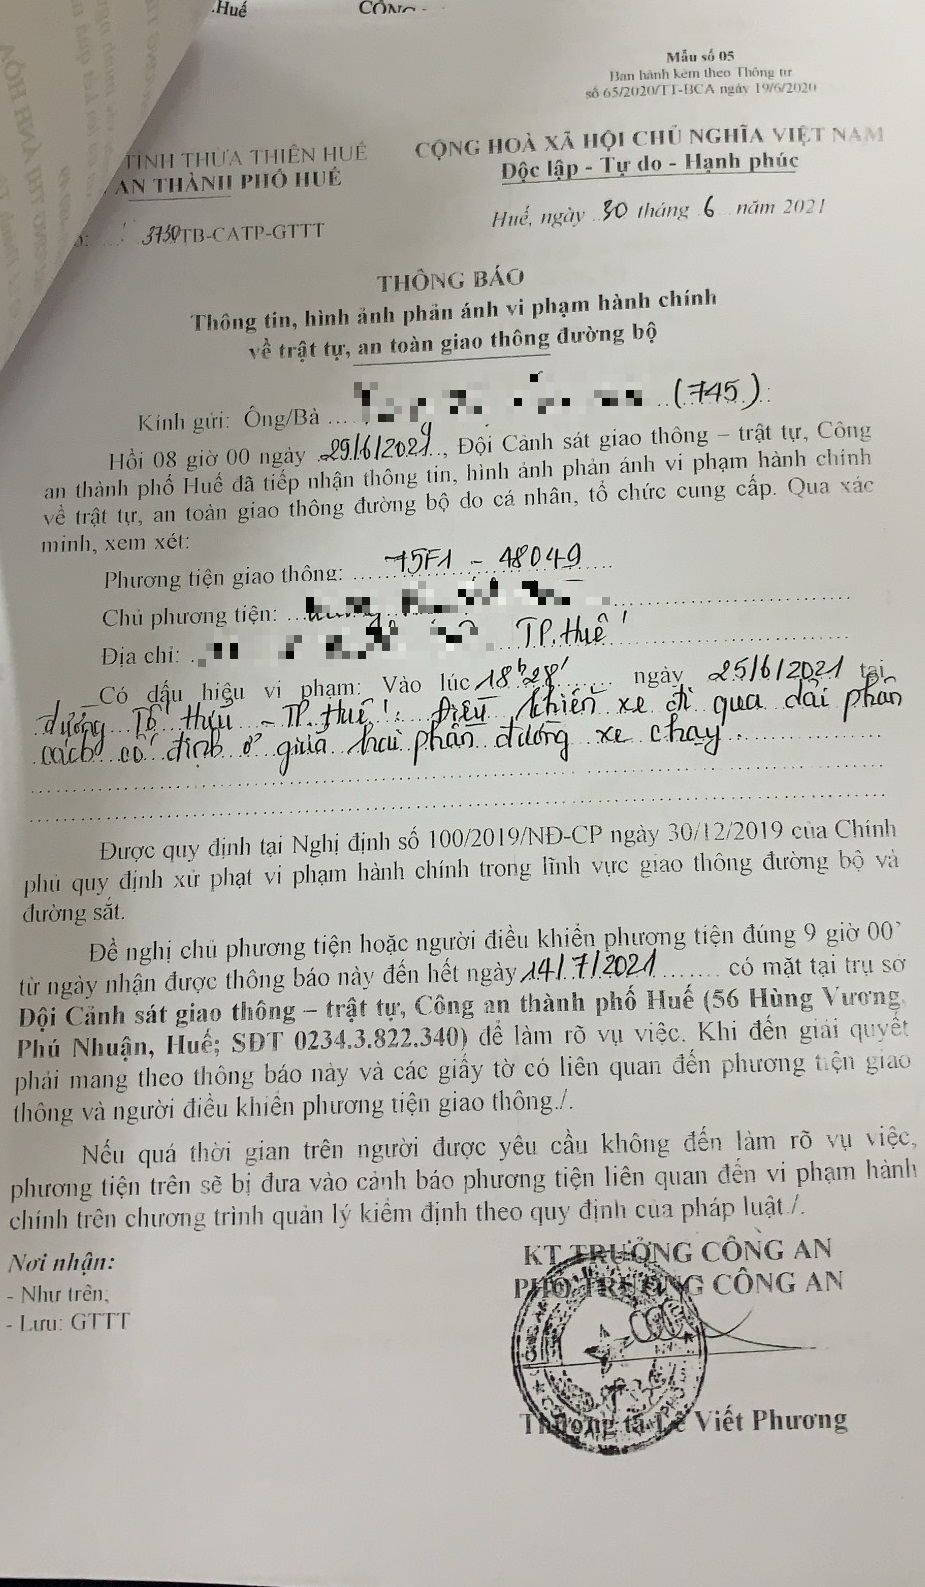 .Huế
Mẫu số 05
Ban hành kèm theo Thông tư
số 65/2020/TT-BCA ngày 19/6/2020
TỈNH THỪA THIÊN HUẾ
AN THÀNH PHỐ HUẾ
CỘNG HOÀ XÃ HỘI CHỦ NGHĨA VIỆT NAM
Độc lập - Tự do - Hạnh phúc
3750/TB-CATP-GTTT
Huế, ngày 30 tháng 6 năm 2021
THÔNG BÁO
Thông tin, hình ảnh phản ánh vi phạm hành chính
về trật tự, an toàn giao thông đường bộ
Kính gửi: Ông/Bà ... (745)
Hồi 08 giờ 00 ngày 29/6/2021, Đội Cảnh sát giao thông – trật tự, Công
an thành phố Huế đã tiếp nhận thông tin, hình ảnh phản ánh vi phạm hành chính
về trật tự, an toàn giao thông đường bộ do cá nhân, tổ chức cung cấp. Qua xác
minh, xem xét:
Phương tiện giao thông: 75F1 - 48049
Chủ phương tiện:
Địa chỉ: TP. Huế
Có dấu hiệu vi phạm: Vào lúc 18h28' ngày 25/6/2021 tại
đường Tố Hữu - TP. Huế. Điều khiển xe đi qua dải phân
cách cố định ở giữa hai phần đường xe chạy.
Được quy định tại Nghị định số 100/2019/NĐ-CP ngày 30/12/2019 của Chính
phủ quy định xử phạt vi phạm hành chính trong lĩnh vực giao thông đường bộ và
đường sắt.
Đề nghị chủ phương tiện hoặc người điều khiển phương tiện đúng 9 giờ 00'
từ ngày nhận được thông báo này đến hết ngày 14/7/2021 có mặt tại trụ sở
Đội Cảnh sát giao thông – trật tự, Công an thành phố Huế (56 Hùng Vương,
Phú Nhuận, Huế; SĐT 0234.3.822.340) để làm rõ vụ việc. Khi đến giải quyết
phải mang theo thông báo này và các giấy tờ có liên quan đến phương tiện giao
thông và người điều khiển phương tiện giao thông./.
Nếu quá thời gian trên người được yêu cầu không đến làm rõ vụ việc,
phương tiện trên sẽ bị đưa vào cảnh báo phương tiện liên quan đến vi phạm hành
chính trên chương trình quản lý kiểm định theo quy định của pháp luật./.
Nơi nhận:
- Như trên;
- Lưu: GTTT
KT TRƯỞNG CÔNG AN
PHÓ TRƯỞNG CÔNG AN
Thượng tá Lê Viết Phương